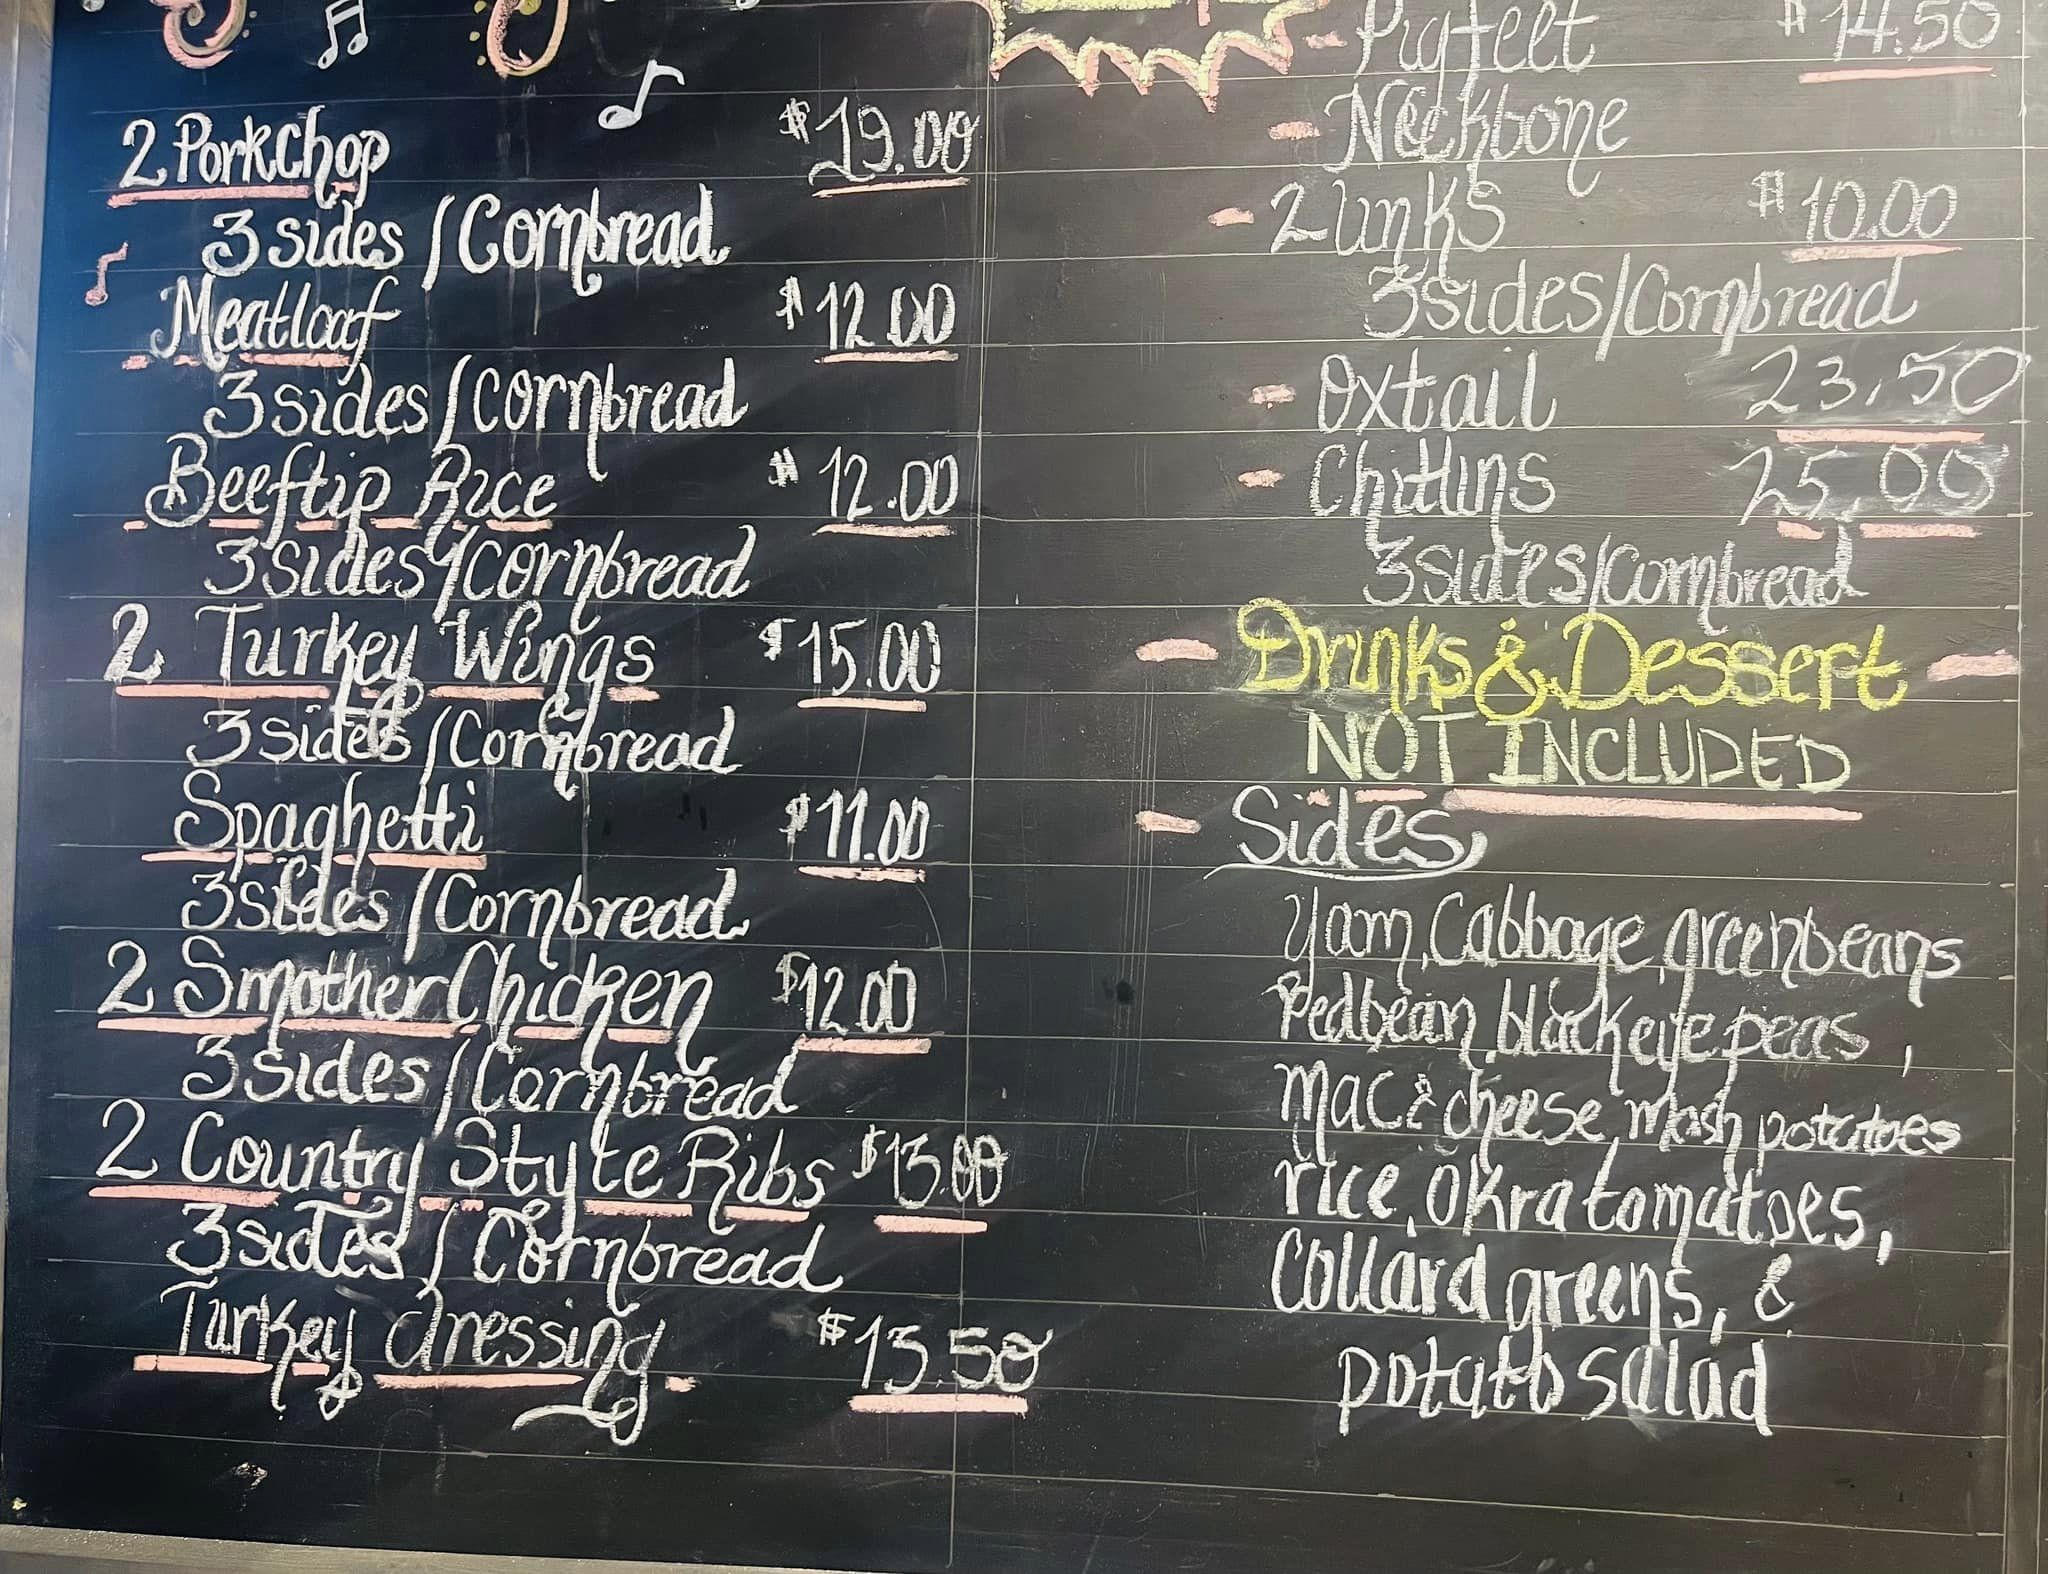 2 Porkchop $19.00
3 sides / Cornbread
Meatloaf $12.00
3 sides / cornbread
Beeftip Rice $12.00
3 sides / cornbread
2 Turkey Wings $15.00
3 sides / Cornbread
Spaghetti $11.00
3 sides / Cornbread
2 Smother Chicken $12.00
3 sides / Cornbread
2 Country Style Ribs $13.00
3 sides / Cornbread
Turkey dressing $13.50
- Pigfeet $14.50
- Neckbone
- 2 links $10.00
3 sides / Cornbread
- Oxtail 23.50
- Chitlins 25.00
3 sides / Cornbread
- Drinks & Dessert -
NOT INCLUDED
- Sides,
yam, Cabbage, greenbeans
Redbean, blackeye peas,
mac & cheese, mash potatoes
rice, okra tomatoes,
collard greens, &
potato salad